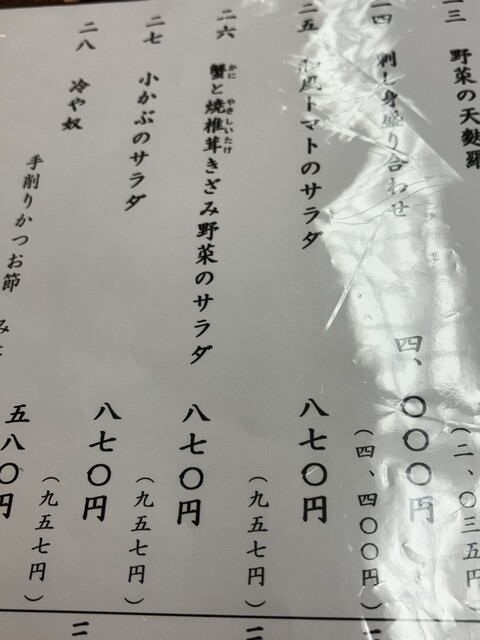 二三 野菜の天麩羅
（二、〇三五円）
二四 刺し身盛り合わせ 四、〇〇〇円
（四、四〇〇円）
二五 和風トマトのサラダ 八七〇円
（九五七円）
かに やきしいたけ
二六 蟹と焼椎茸きざみ野菜のサラダ 八七〇円
（九五七円）
二七 小かぶのサラダ 八七〇円
（九五七円）
二八 冷や奴 五八〇円
手削りかつお節